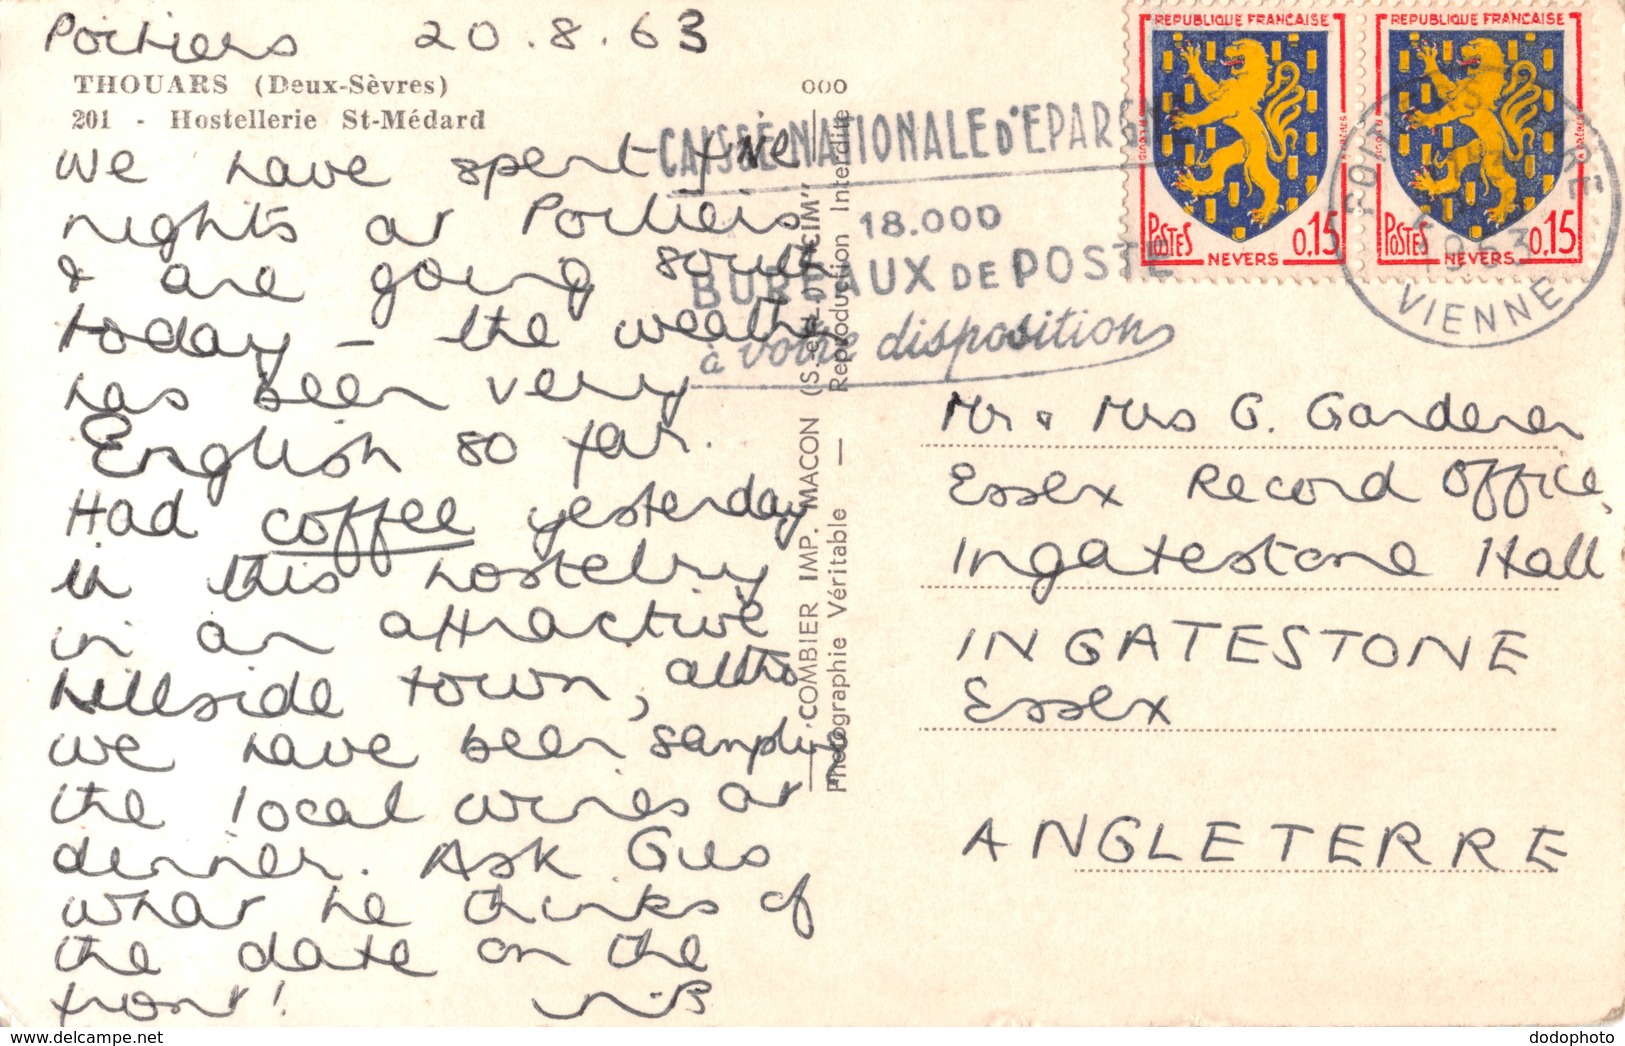 Poitiers 20.8.63
THOUARS (Deux-Sèvres)
201 - Hostellerie St-Médard
We have spent five
nights at Poitiers
& are going south
today – the weather
has been very
English so far.
Had coffee yesterday
in this hostelry
in an attractive
hillside town, altho
we have been sampling
the local wines at
dinner. Ask Gus
what he thinks of
the date on the
front!
COMBIER IMP. MACON (S.-et-L.) "CIM"
Photographie Véritable — Reproduction Interdite
CAISSE NATIONALE D'EPARGNE
18.000
BUREAUX DE POSTE
à votre disposition
REPUBLIQUE FRANCAISE
POSTES 0,15
NEVERS
REPUBLIQUE FRANCAISE
POSTES 0,15
NEVERS
1963
VIENNE
Mr & Mrs G. Gardener
Essex Record Office,
Ingatestone Hall
INGATESTONE
Essex
ANGLETERRE
www.delcampe.net
dodophoto